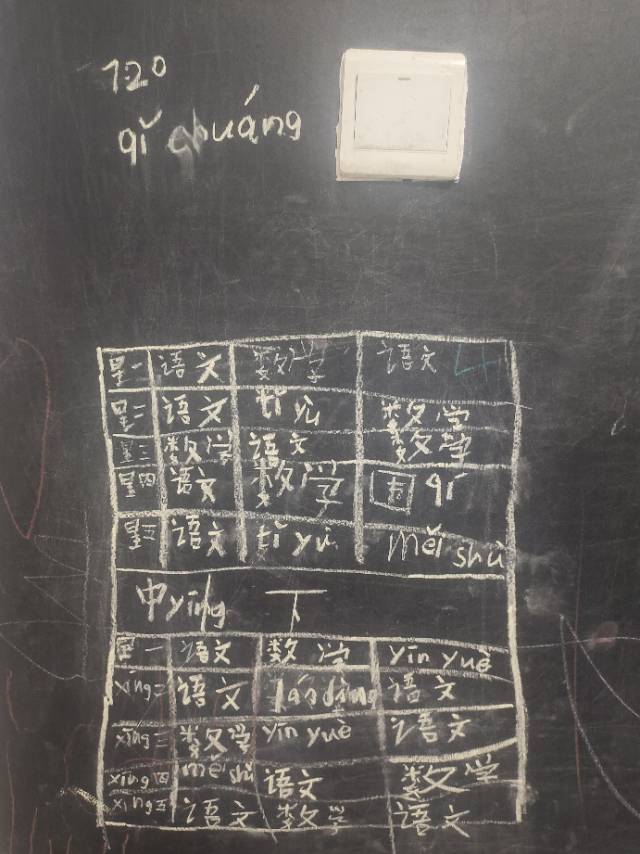 120
qǐ chuáng
星一 语文 数学 语文
星二 语文 tǐ yù 数学
星三 数学 语文 数学
星四 语文 数学 围 qí
星五 语文 tǐ yù měi shù
中 yīng 下
星一 语文 数学 yīn yuè
xīng二 语文 láo dòng 语文
xīng三 数学 yīn yuè 语文
xīng四 měi shù 语文 数学
xīng五 语文 数学 语文